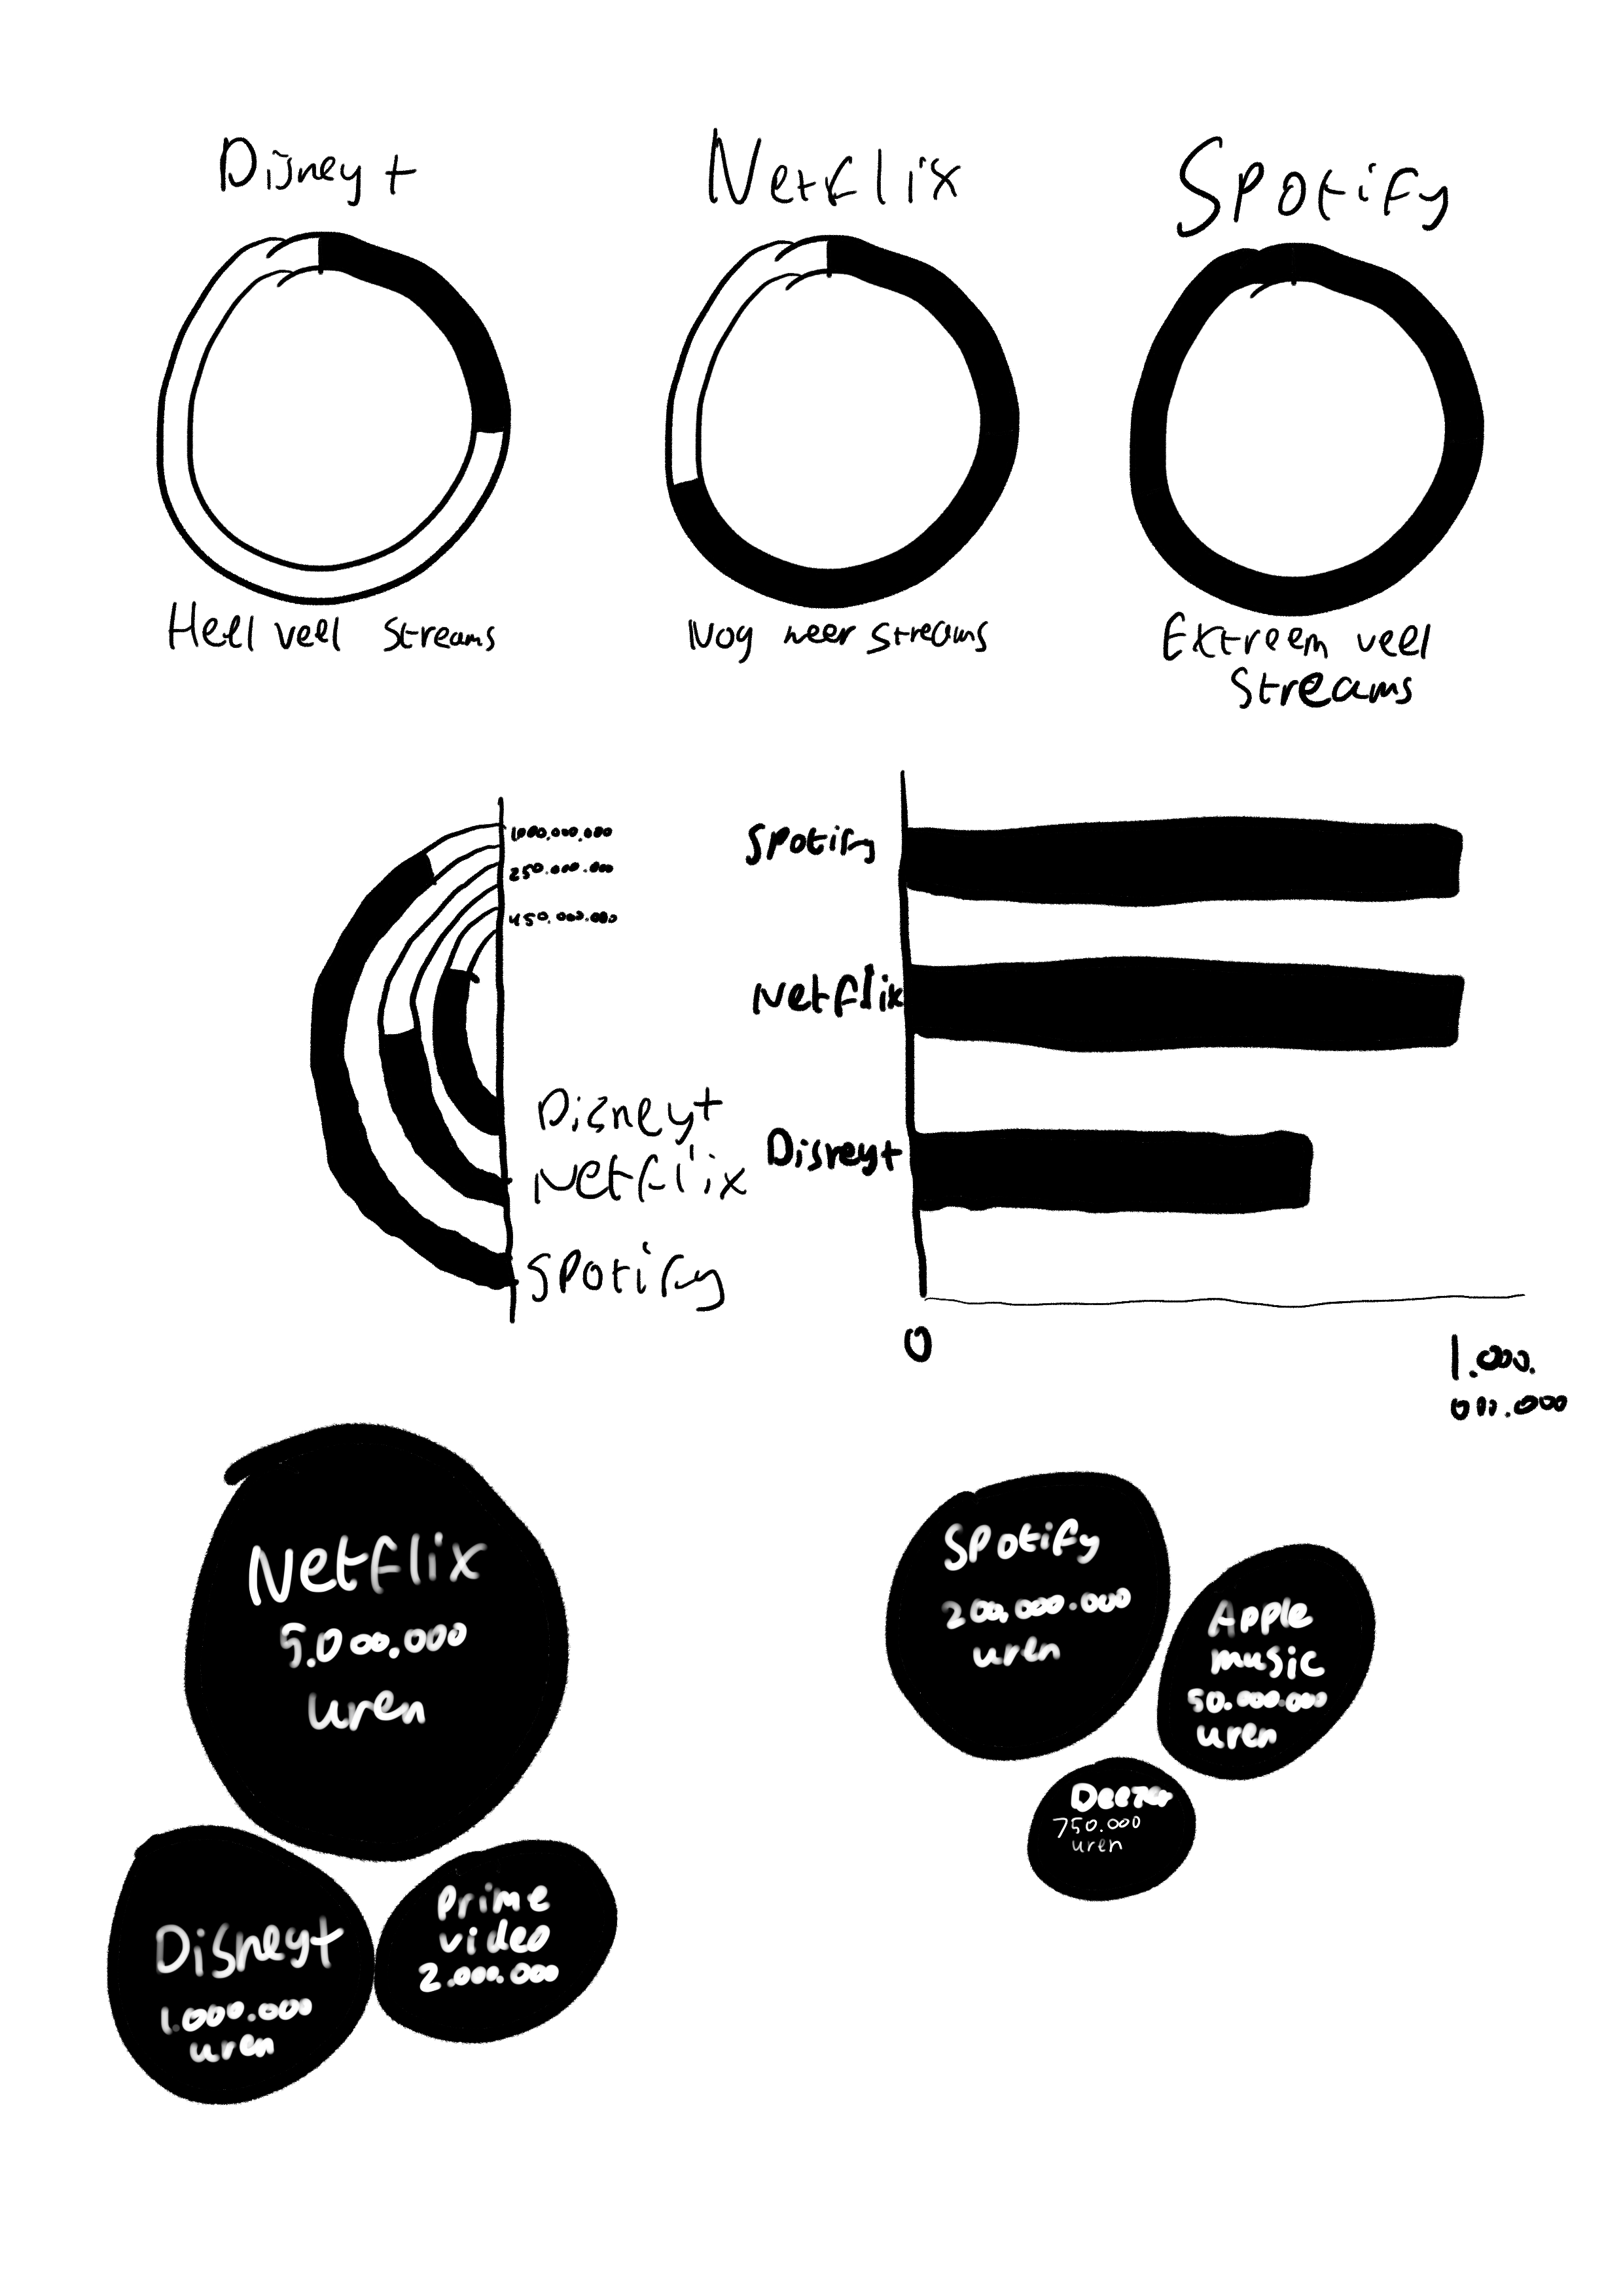 Disney+
Netflix
Spotify
Heel veel streams
Nog meer streams
Extreem veel
streams
1.000.000.000
250.000.000
450.000.000
Disney+
Netflix
Spotify
Spotify
Netflix
Disney+
0
1.000.
000.000
Netflix
5.000.000
uren
Disney+
1.000.000
uren
Prime
video
2.000.000
Spotify
200.000.000
uren
Apple
music
50.000.000
uren
Deezer
750.000
uren